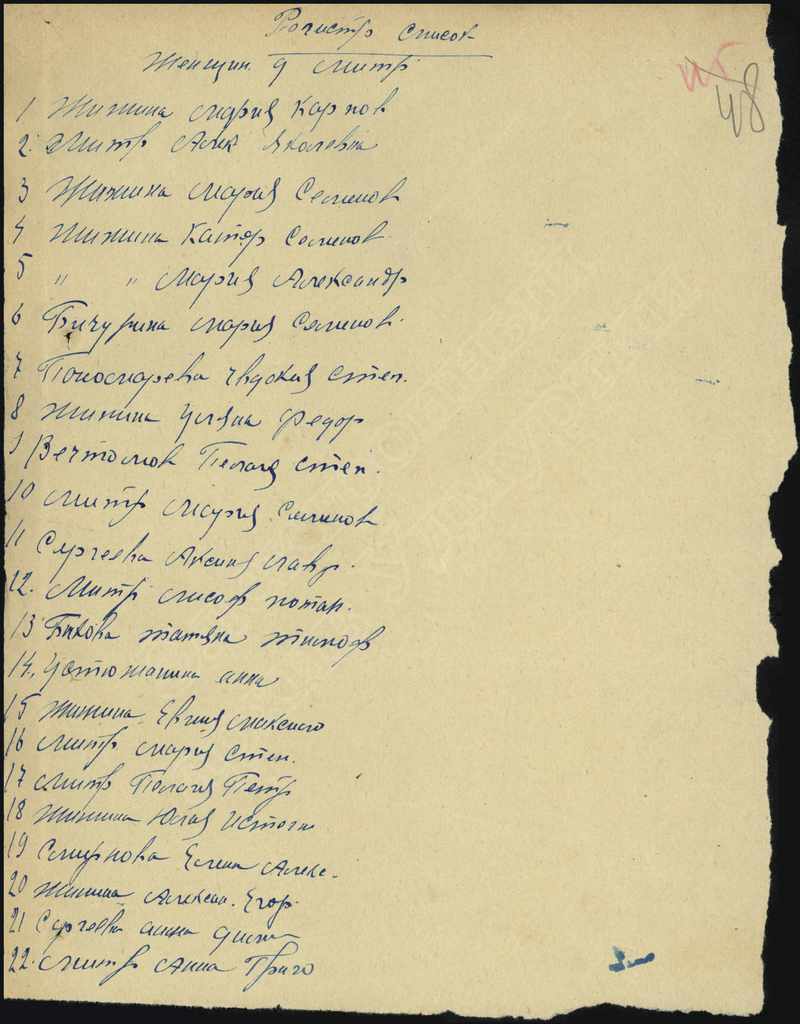 Регистр список
Женщин д Митр
48
1 Жижина Мария Карпов
2. Митр Алек Яковевна
3 Жижина Мария Семенов
4 Жижина Катер Семенов
5 " " Мария Александр
6 Бичурина Мария Семенов.
7 Пономарева Евдокия Степ.
8 Жижина Уляна Федор
9 Вечтомов Пелаг Степ.
10 Митр Мария Семенов
11 Сергеева Аксиния Лавр.
12. Митр Лисоф Потап.
13 Бикова Татяна Тимоф
14. Устюжанина Анна
15 Жижина Евгния Максимо
16 Митр Мария Степ.
17 Митр Пелагия Петр
18 Жижина Юлия
19 Смирнова Елена Алекс.
20 Жижина Алексан. Егор.
21 Сергеева Анна
22. Митр Анна Григо